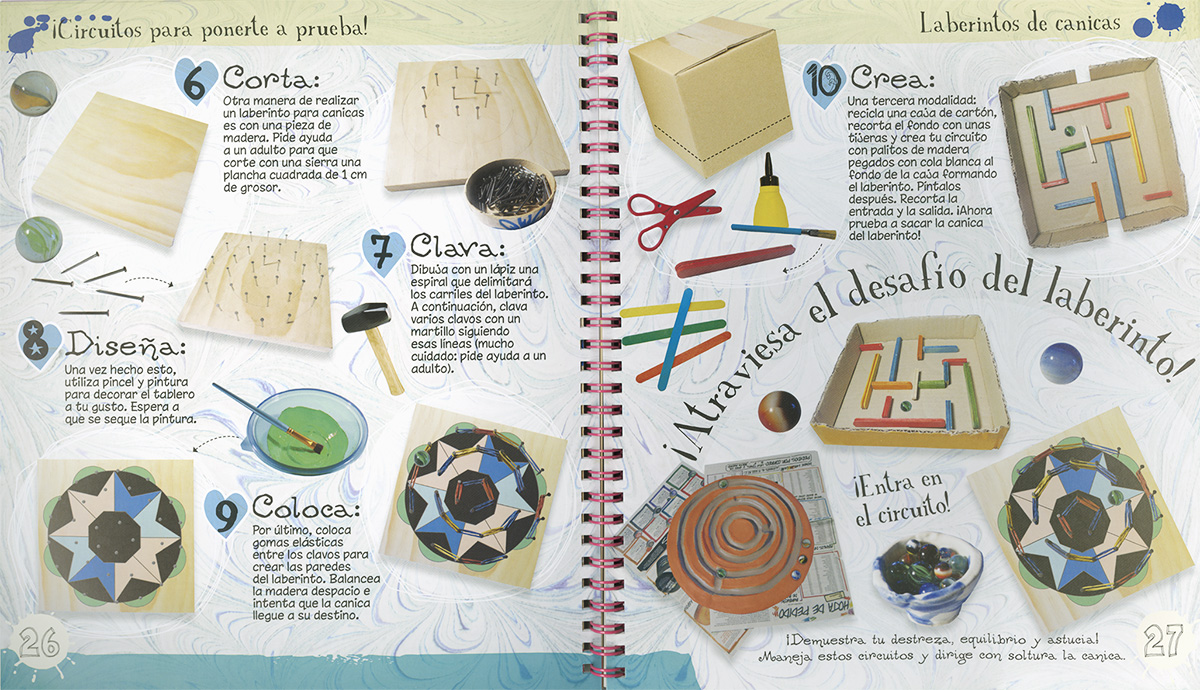 ¡Circuitos para ponerte a prueba!
6 Corta:
Otra manera de realizar
un laberinto para canicas
es con una pieza de
madera. Pide ayuda
a un adulto para que
corte con una sierra una
plancha cuadrada de 1 cm
de grosor.
7 Clava:
Dibuja con un lápiz una
espiral que delimitará
los carriles del laberinto.
A continuación, clava
varios clavos con un
martillo siguiendo
esas líneas (mucho
cuidado: pide ayuda a un
adulto).
8 Diseña:
Una vez hecho esto,
utiliza pincel y pintura
para decorar el tablero
a tu gusto. Espera a
que se seque la pintura.
9 Coloca:
Por último, coloca
gomas elásticas
entre los clavos para
crear las paredes
del laberinto. Balancea
la madera despacio e
intenta que la canica
llegue a su destino.
26
Laberintos de canicas
10 Crea:
Una tercera modalidad:
recicla una caja de cartón,
recorta el fondo con unas
tijeras y crea tu circuito
con palitos de madera
pegados con cola blanca al
fondo de la caja formando
el laberinto. Píntalos
después. Recorta la
entrada y la salida. ¡Ahora
prueba a sacar la canica
del laberinto!
¡Atraviesa el desafío del laberinto!
¡Entra en
el circuito!
HOJA DE PEDIDO
¡Demuestra tu destreza, equilibrio y astucia!
Maneja estos circuitos y dirige con soltura la canica.
27